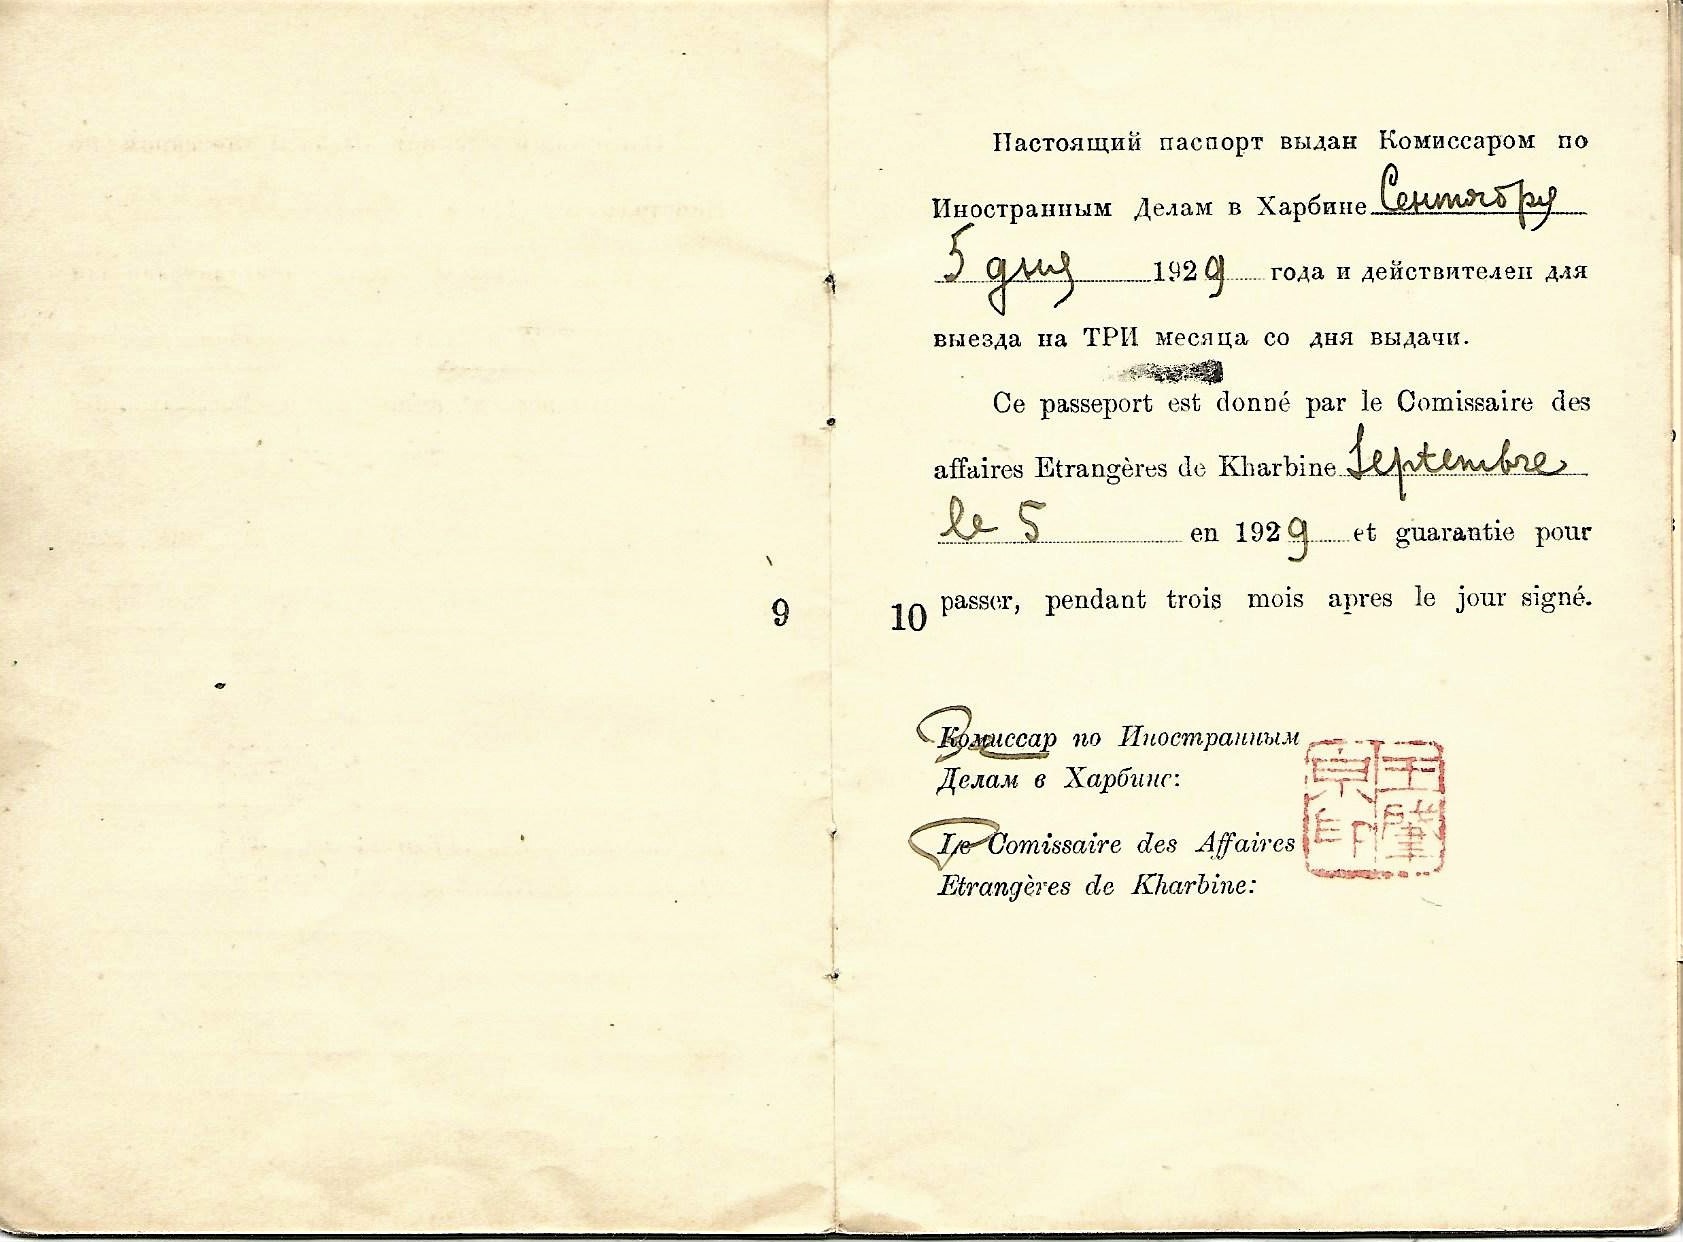 Настоящий паспорт выдан Комиссаром по
Иностранным Делам в Харбине Сентября
5 дня 1929 года и действителен для
выезда на ТРИ месяца со дня выдачи.
Ce passeport est donné par le Comissaire des
affaires Etrangères de Kharbine Septembre
le 5 en 1929 et guarantie pour
passer, pendant trois mois apres le jour signé.
9
10
Комиссар по Иностранным
Делам в Харбине:
Le Comissaire des Affaires
Etrangères de Kharbine:
王肇
京印